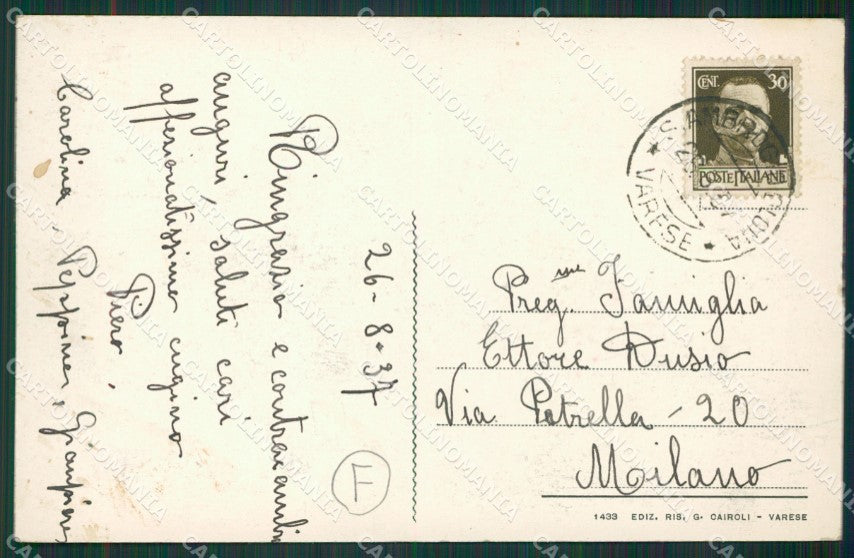 26-8-37
Ringrazio e contracambio
auguri, saluti cari
affezionatissimo cugino
Piero,
Carolina - Peppina, Giampiero
F
CENT. 30
POSTE ITALIANE
S. AMBROGIO OLONA
VARESE
Preg.me Famiglia
Ettore Dusio
Via Petrella - 20
Milano
1433 EDIZ. RIS. G. CAIROLI - VARESE
CARTOLINOMANIA